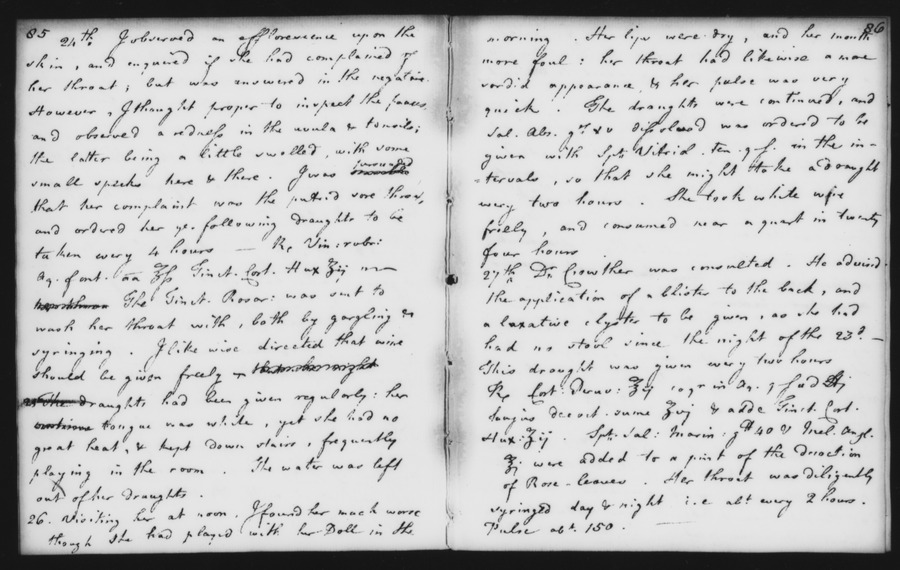 85
24th. I observed an efflorescence upon the
skin, and enquired if she had complained of
her throat; but was answered in the negative.
However, I thought proper to inspect the fauces,
and observed a redness in the uvula & tonsils;
the latter being a little swelled, with some
small specks here & there. I was
that her complaint was the putrid sore throat,
and ordered her ye. following draughts to be
taken every 4 hours — Rx Vin: rubr:
Aq. font. āā ℥ſs Tinct. Cort. Hux ʒij
The Tinct. Rosar: was sent to
wash her throat with, both by gargling &
syringing. I likewise directed that wine
should be given freely
The draughts had been given regularly: her
tongue was white, yet she had no
great heat, & kept down stairs, frequently
playing in the room. The water was left
out of her Draughts.
26. Visiting her at noon. I found her much worse
though she had played with her Doll in the
86
morning. Her lips were dry, and her mouth
more foul: her throat had likewise a more
sordid appearance, & her pulse was very
quick. The draughts were continued, and
Sal. Abs. gr xv dissolved was ordered to be
given with Spt. Vitriol. ten. q.s. in the in-
-tervals, so that she might take a draught
every two hours. She took white wine
freely, and consumed near a quart in twenty
four hours
27th Dr. Crowther was consulted. He advised
the application of a blister to the back, and
a laxative clyster to be given, as she had
had no stool since the night of the 23d. —
This draught was given every two hours
Rx Cort: Peruv: ʒij coqr in Aq.
decoct. sume & adde Tinct. Cort.
Hux: ʒij. Spt: Sal: Marin: gtt 40 & Mel. Angl.
℥j were added to a pint of the decoction
of Rose-leaves. Her throat was diligently
syringed day & night i.e abt. every 2 hours.
Pulse abt. 150.